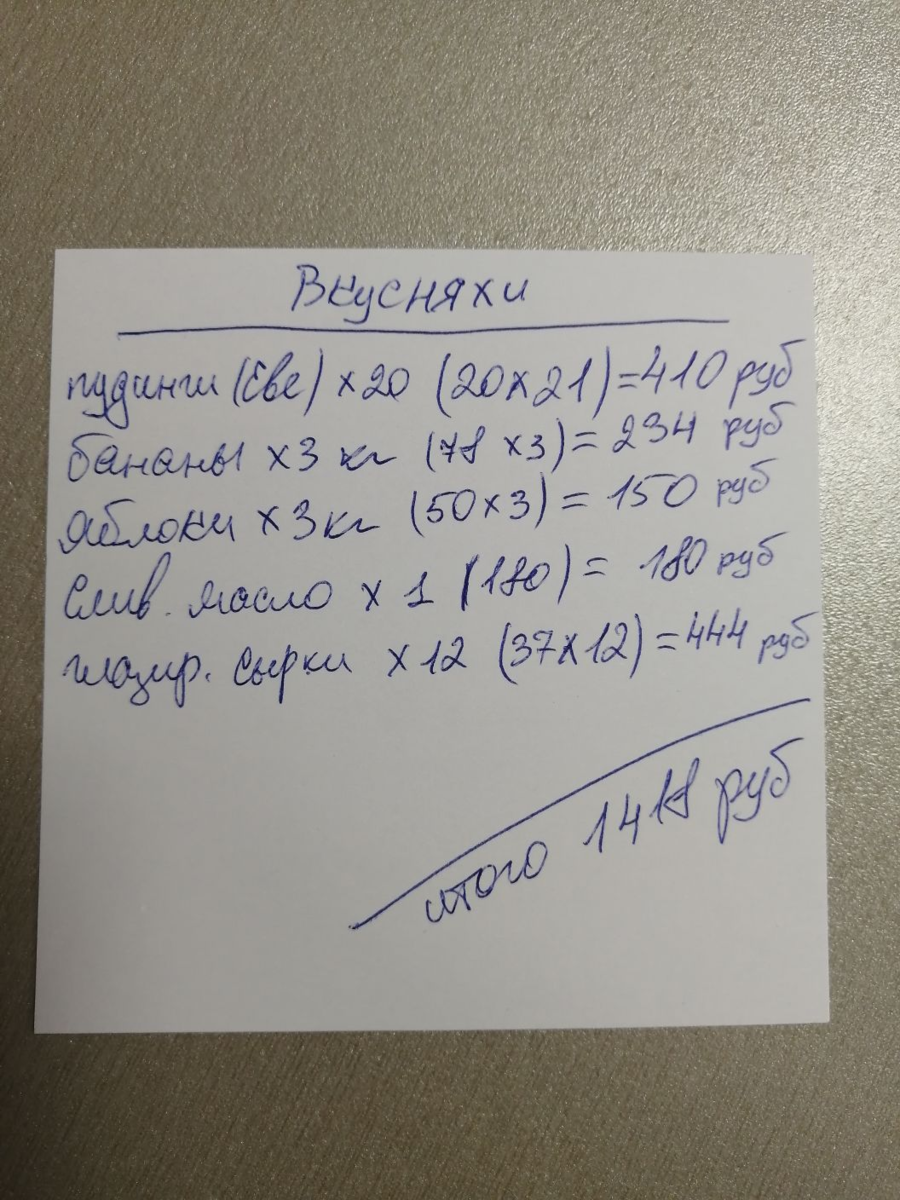 Вкусняхи
пудинги (Еве) x20 (20x21)=410 руб
бананы x3 кг (78 x3)= 234 руб
яблоки x3кг (50x3)= 150 руб
слив. масло x 1 (180)= 180 руб
глазир. сырки x12 (37x12)=444 руб
итого 1418 руб